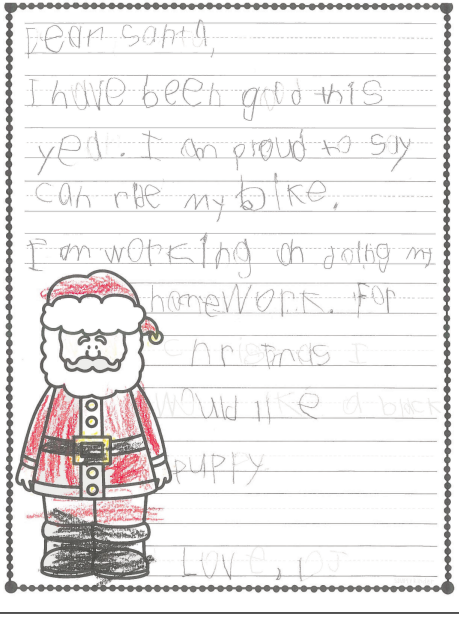 Dear Santa,
I have been good this
year. I am proud to say
can ride my bike.
I am working on doing my
homework. For
christmas I
would like a black
puppy
Love, PJ